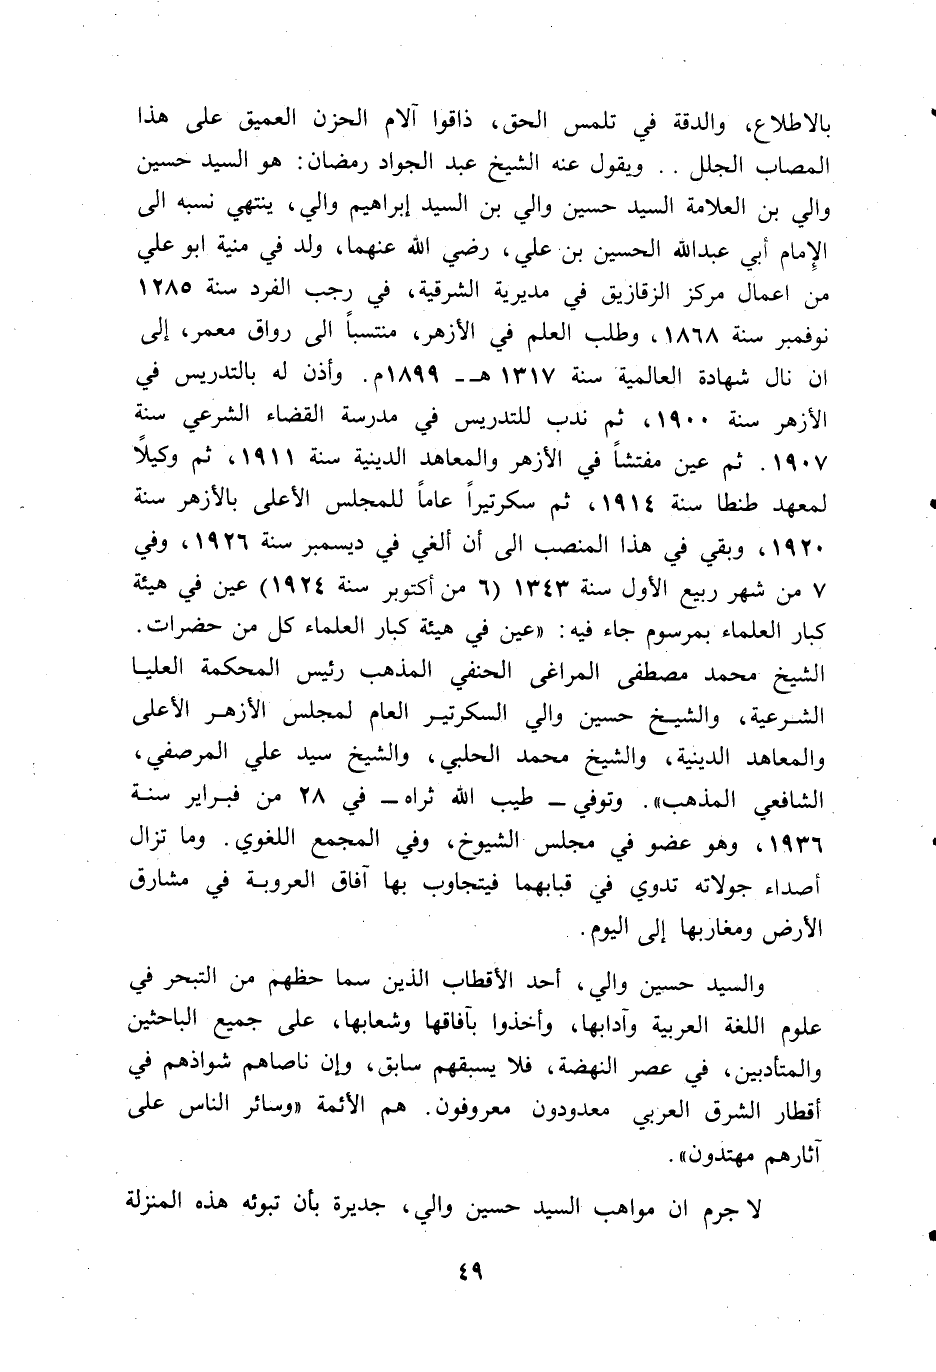 بالاطلاع، والدقة في تلمس الحق، ذاقوا آلام الحزن العميق على هذا
المصاب الجلل . . ويقول عنه الشيخ عبد الجواد رمضان: هو السيد حسين
والي بن العلامة السيد حسين والي بن السيد إبراهيم والي، ينتهي نسبه الى
الإمام أبي عبدالله الحسين بن علي، رضي الله عنهما، ولد في منية ابو علي
من اعمال مركز الزقازيق في مديرية الشرقية، في رجب الفرد سنة ١٢٨٥
نوفمبر سنة ١٨٦٨، وطلب العلم في الأزهر، منتسباً الى رواق معمر، إلى
ان نال شهادة العالمية سنة ١٣١٧ هـ ـ ١٨٩٩م. وأذن له بالتدريس في
الأزهر سنة ١٩٠٠، ثم ندب للتدريس في مدرسة القضاء الشرعي سنة
١٩٠٧. ثم عين مفتشاً في الأزهر والمعاهد الدينية سنة ١٩١١، ثم وكيلاً
لمعهد طنطا سنة ١٩١٤، ثم سكرتيراً عاماً للمجلس الأعلى بالأزهر سنة
١٩٢٠، وبقي في هذا المنصب الى أن ألغي في ديسمبر سنة ١٩٢٦، وفي
٧ من شهر ربيع الأول سنة ١٣٤٣ (٦ من أكتوبر سنة ١٩٢٤) عين في هيئة
كبار العلماء بمرسوم جاء فيه: «عين في هيئة كبار العلماء كل من حضرات.
الشيخ محمد مصطفى المراغى الحنفي المذهب رئيس المحكمة العليا
الشرعية، والشيخ حسين والي السكرتير العام لمجلس الأزهر الأعلى
والمعاهد الدينية، والشيخ محمد الحلبي، والشيخ سيد علي المرصفي،
الشافعي المذهب». وتوفي ـ طيب الله ثراه ـ في ٢٨ من فبراير سنة
١٩٣٦، وهو عضو في مجلس الشيوخ، وفي المجمع اللغوي. وما تزال
أصداء جولاته تدوي في قبابهما فيتجاوب بها آفاق العروبة في مشارق
الأرض ومغاربها إلى اليوم.
والسيد حسين والي، أحد الأقطاب الذين سما حظهم من التبحر في
علوم اللغة العربية وآدابها، وأخذوا بآفاقها وشعابها، على جميع الباحثين
والمتأدبين، في عصر النهضة، فلا يسبقهم سابق، وإن ناصاهم شواذهم في
أقطار الشرق العربي معدودون معروفون. هم الأئمة «وسائر الناس على
آثارهم مهتدون».
لا جرم ان مواهب السيد حسين والي، جديرة بأن تبوئه هذه المنزلة
٤٩